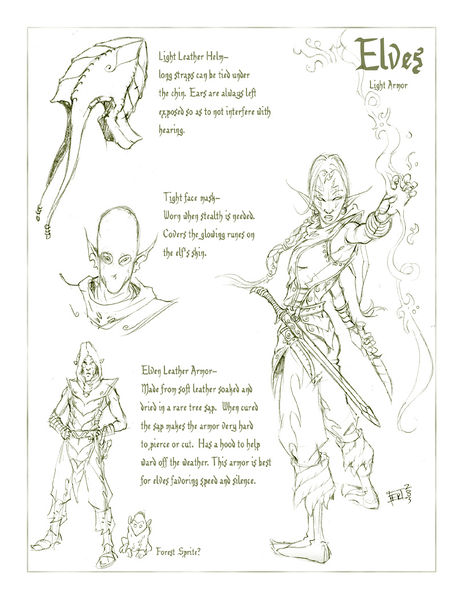 Elves
Light Armor
Light Leather Helm-
long straps can be tied under
the chin. Ears are always left
exposed so as to not interfere with
hearing.
Tight face mask-
Worn when stealth is needed.
Covers the glowing runes on
the elf's skin.
Elven Leather Armor-
Made from soft leather soaked and
dried in a rare tree sap. When cured
the sap makes the armor very hard
to pierce or cut. Has a hood to help
ward off the weather. This armor is best
for elves favoring speed and silence.
Forest Sprite?
2003